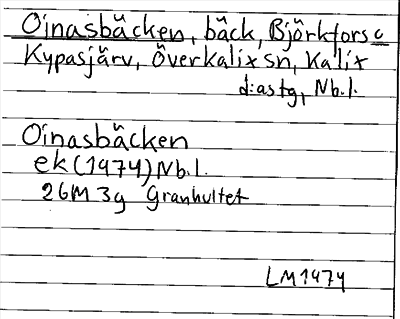 Oinasbäcken, bäck, Björkfors o
Kypasjärv, Överkalix sn, Kalix
distg, Nb.l.
Oinasbäcken
ek (1974) Nb.l.
26M 3g Granhultet
LM 1974